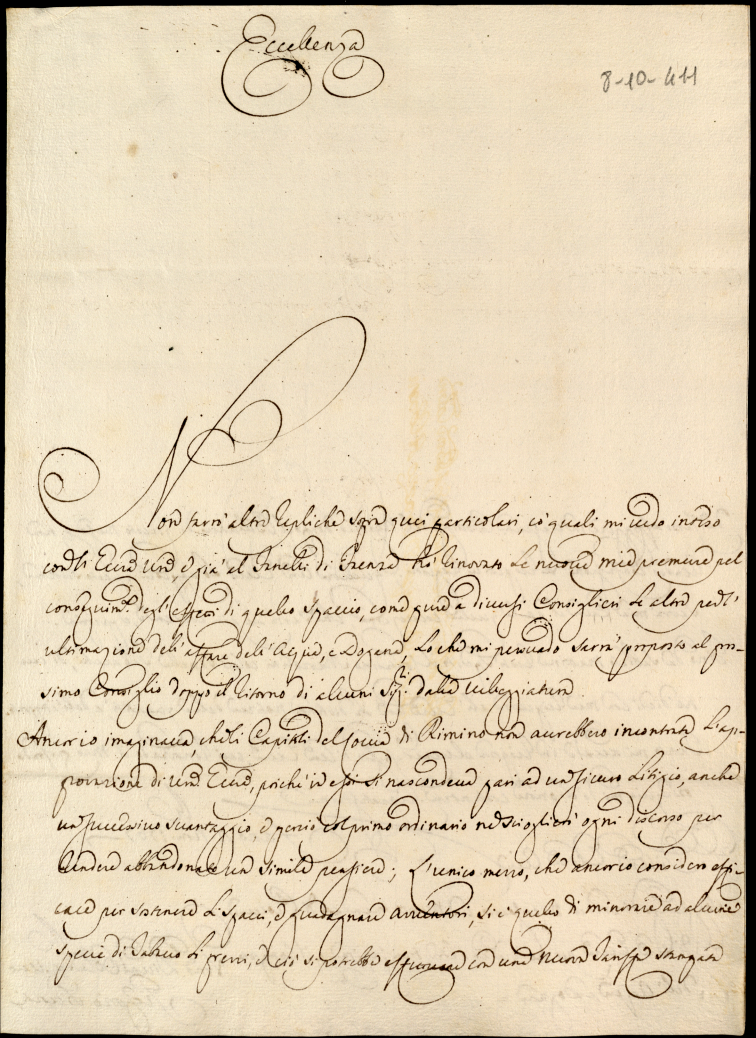 Eccellenza
8-10-411
Non farò altre repliche sopra quei particolari, co' quali mi vedo inteso
con di Ecc.za V.ra, e già al Zanelli di Faenza hò rinovato le nuove mie premure pel
conseguim.to degl' effetti di quello Spaccio, come pure a diversi Consiglieri le altre per l'
ultimazione dell' affare dell' Acque, e Dogene, lo che mi persuado sarrà proposto al pros-
simo Consiglio doppo il ritorno di alcuni Sig.ri dalla villeggiatura
Ancor io imaginava, che li Capitoli del di Rimino non aurebbero incontrata l'ap-
provazione di V.ra Ecc.za, poiché in essi si nascondeva pari ad un sicuro Litigio, anche
un successivo svantaggio, e perciò col primo ordinario ne scioglierò ogni discorso per
rendere abbandonato un simile pensiere; L'unico mezzo, che ancor io considero effi-
cace per sostenere li spacci, e guadagnare avventori, si è quello di minorare ad alcune
specie di Tabacco li prezzi, e ciò si potrebbe effettuare con una nuova Tariffa stampata